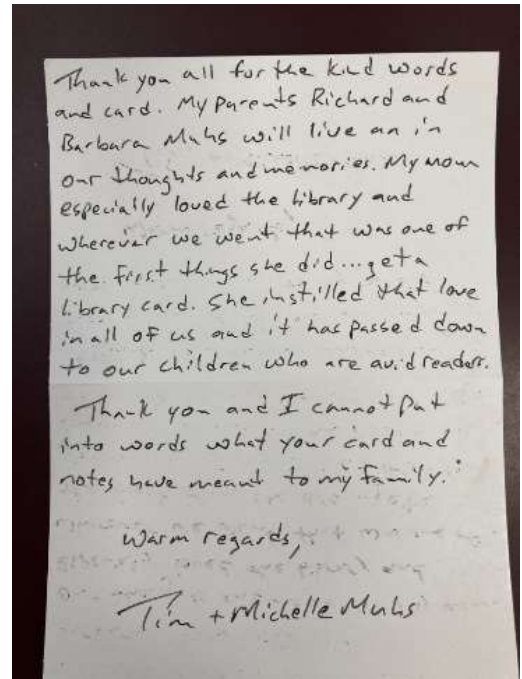 Thank you all for the kind words
and card. My Parents Richard and
Barbara Muhs will live on in
our thoughts and memories. My mom
especially loved the library and
wherever we went that was one of
the first things she did...get a
library card. She instilled that love
in all of us and it has passed down
to our children who are avid readers.
Thank you and I cannot put
into words what your card and
notes have meant to my family.
Warm regards,
Tim + Michelle Muhs